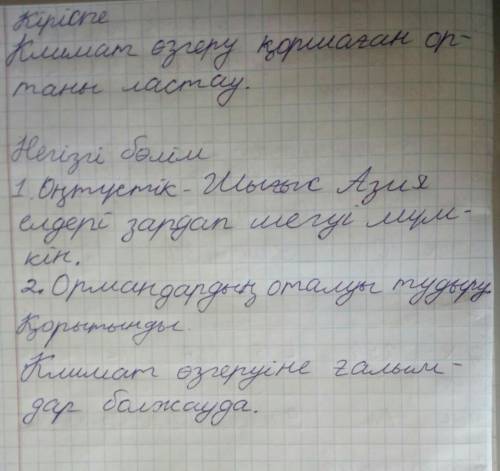 Кіріспе
Климат өзгеру қоршаған ор-
таны ластау.
Негізгі бөлім
1. Оңтүстік-Шығыс Азия
елдері зардап шегуі мүм-
кін.
2. Ормандардың оталуы тудыру.
Қорытынды
Климат өзгеруіне ғалым-
дар болжауда.